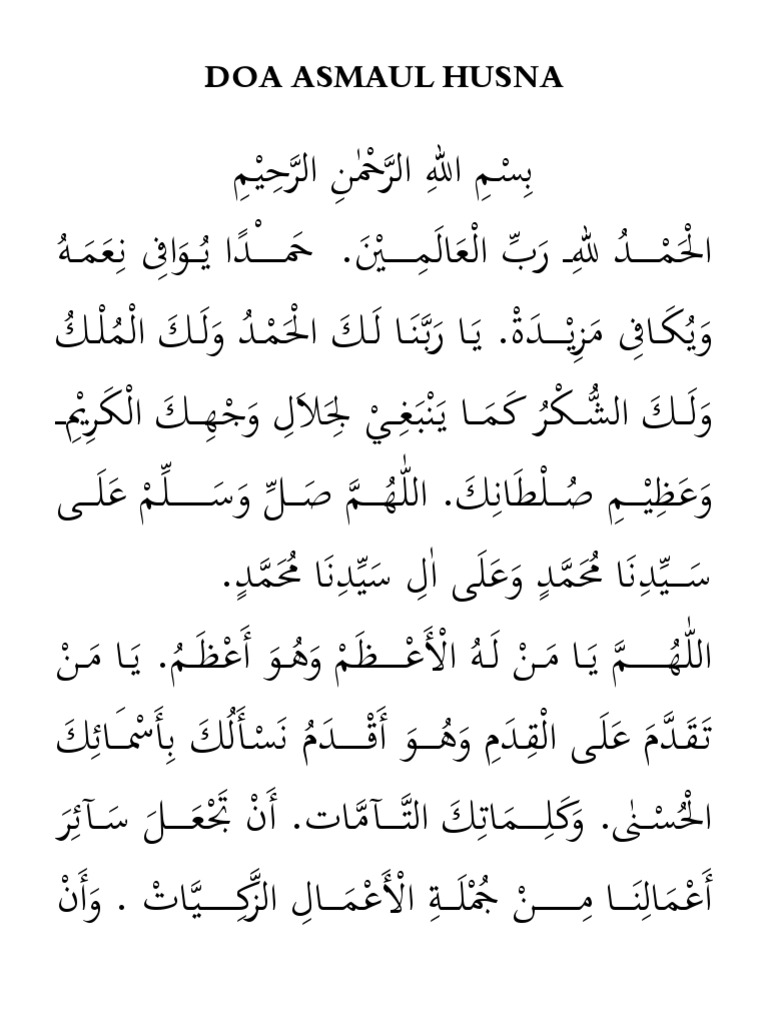 DOA ASMAUL HUSNA
بِسْمِ اللهِ الرَّحْمٰنِ الرَّحِيْمِ
الْحَمْدُ لِلهِ رَبِّ الْعَالَمِيْنَ. حَمْدًا يُوَافِى نِعَمَهُ
وَيُكَافِى مَزِيْدَةْ. يَا رَبَّنَا لَكَ الْحَمْدُ وَلَكَ الْمُلْكُ
وَلَكَ الشُّكْرُ كَمَا يَنْبَغِيْ لِجَلاَلِ وَجْهِكَ الْكَرِيْمِ
وَعَظِيْمِ صُلْطَانِكَ. اللّٰهُمَّ صَلِّ وَسَلِّمْ عَلَى
سَيِّدِنَا مُحَمَّدٍ وَعَلَى اٰلِ سَيِّدِنَا مُحَمَّدٍ.
اللّٰهُمَّ يَا مَنْ لَهُ الْأَعْظَمْ وَهُوَ أَعْظَمُ. يَا مَنْ
تَقَدَّمَ عَلَى الْقِدَمِ وَهُوَ أَقْدَمُ نَسْأَلُكَ بِأَسْمَائِكَ
الْحُسْنٰى. وَكَلِمَاتِكَ التَّآمَّات. أَنْ تَجْعَلَ سَآئِرَ
أَعْمَالِنَا مِنْ جُمْلَةِ الْأَعْمَالِ الزَّكِيَّاتْ . وَأَنْ